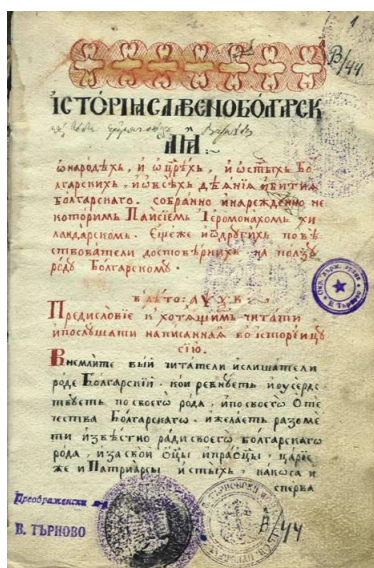 1
В/44
ИСТОРІЯ СЛАВЕНОБОЛГАРСК
АЯ
ѡ народѣхъ, и ѡ цр҃ѣхъ, и ѡ ст҃ыхъ Бо
лгарскихъ. и ѡ всѣхъ дѣянія и битія
болгарскаго. собранно и нареждено не
которим Паисіем Іеромонахом хи
ландарском. Еще же
повѣ
ствователи достовѣрнихъ. на ползу
роду Болгарскому.
в лѣто:
Предисловіе к хотящим читати
и послушати написанная во историицу
сію.
Внемлите вий читатели и слишатели
роде Болгарскій. кои ревнуетъ и усерд
ствуетъ по своего рода, и по своего Оте
чества Болгарскаго. и желаетъ разоме
ти извѣстно ради своего болгарскаго
рода, и за свои ѡци и праѡци, царіе
же и Патриарси и ст҃ыхъ, како
сперва
Преображенски
В. ТЪРНОВО
В/44